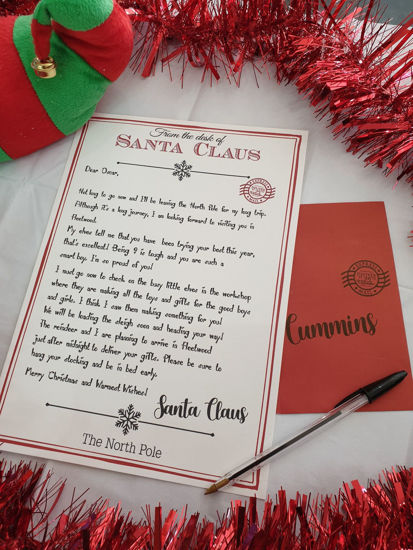 From the desk of
SANTA CLAUS
Dear Oscar,
Not long to go now and I'll be leaving the North Pole for my long trip.
Although it's a long journey, I am looking forward to visiting you in
Fleetwood.
My elves tell me that you have been trying your best this year,
that's excellent! Being 9 is tough and you are such a
smart boy. I'm so proud of you!
I must go now to check on the busy little elves in the workshop
where they are making all the toys and gifts for the good boys
and girls, I think I saw them making something for you!
We will be loading the sleigh soon and heading your way!
The reindeer and I are planning to arrive in Fleetwood
just after midnight to deliver your gifts. Please be sure to
hang your stocking and be in bed early.
Merry Christmas and Warmest Wishes!
Santa Claus
The North Pole
Cummins